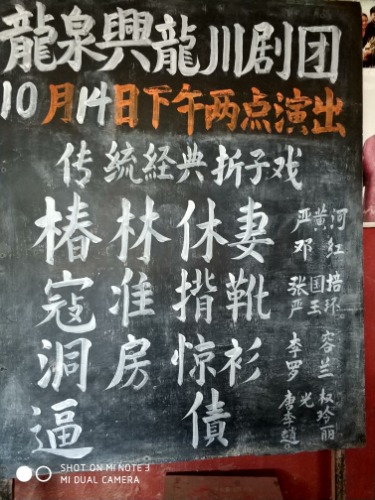 龍泉興龍川剧团
10月14日下午两点演出
传統經典折子戏
椿林休妻
寇准揹靴
洞房惊衫
逼債
严黄河
邓红
张国培
严玉环
李容
罗兰
李玲
趙丽
SHOT ON MI NOTE 3
MI DUAL CAMERA